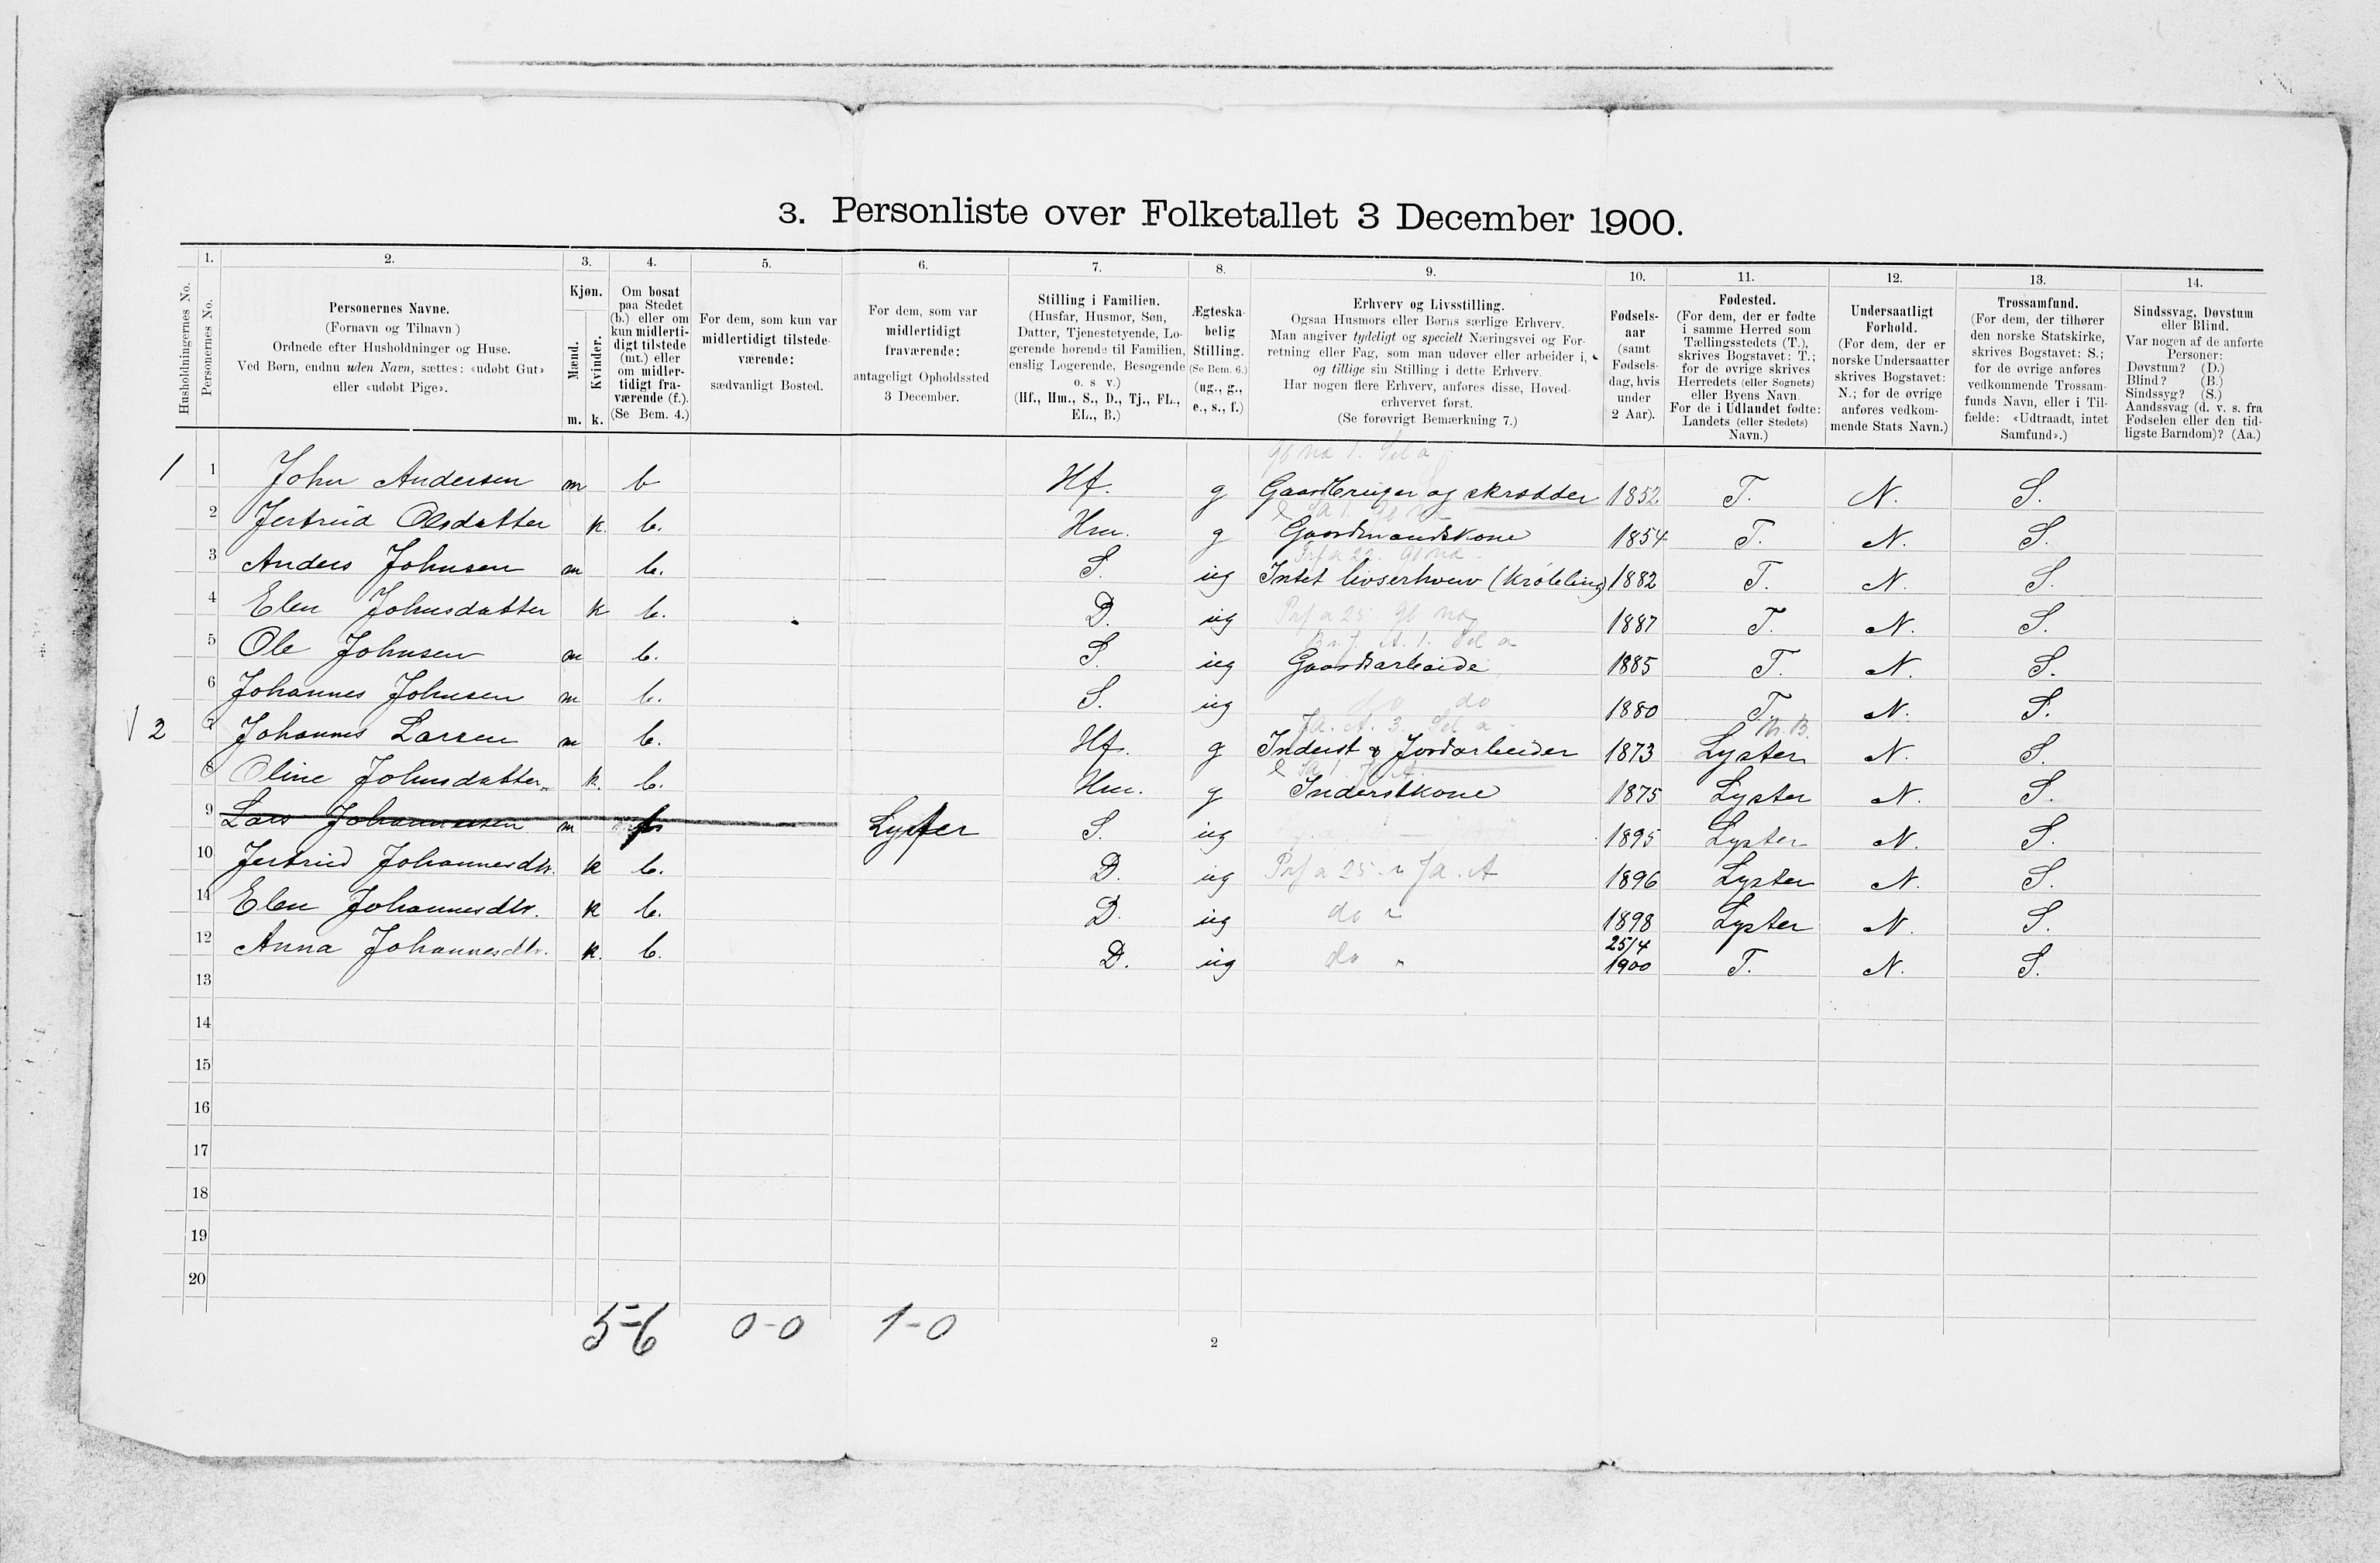 3. Personliste over Folketallet 3 December 1900.
1. 2. 3. 4. 5. 6. 7. 8. 9. 10. 11. 12. 13. 14.
Husholdningernes No.
Personernes No.
Personernes Navne.
(Fornavn og Tilnavn)
Ordnede efter Husholdninger og Huse.
Ved Børn, endnu uden Navn, sættes: «udøbt Gut»
eller «udøbt Pige».
Kjøn.
Mænd.
Kvinder.
m. k.
Om bosat
paa Stedet
(b.) eller om
kun midlerti-
digt tilstede
(mt.) eller
om midler-
tidigt fra-
værende (f.).
(Se Bem. 4.)
For dem, som kun var
midlertidigt tilstede-
værende:
sædvanligt Bosted.
For dem, som var
midlertidigt
fraværende:
antageligt Opholdssted
3 December.
Stilling i Familien.
(Husfar, Husmor, Søn,
Datter, Tjenestetyende, Lo-
gerende hørende til Familien,
enslig Logerende, Besøgende
o. s v.)
(Hf., Hm., S., D., Tj., FL.,
EL., B.)
Ægteska-
belig
Stilling.
(Se Bem. 6.)
(ug., g.,
e., s., f.)
Erhverv og Livsstilling.
Ogsaa Husmors eller Børns særlige Erhverv.
Man angiver tydeligt og specielt Næringsvei og For-
retning eller Fag, som man udøver eller arbeider i,
og tillige sin Stilling i dette Erhverv.
Har nogen flere Erhverv, anføres disse, Hoved-
erhvervet først.
(Se forøvrigt Bemærkning 7.)
Fødsels-
aar
(samt
Fødsels-
dag, hvis
under
2 Aar).
Fødested.
(For dem, der er fødte
i samme Herred som
Tællingsstedets (T.),
skrives Bogstavet: T.;
for de øvrige skrives
Herredets (eller Sognets)
eller Byens Navn.
For de i Udlandet fødte:
Landets (eller Stedets)
Navn.)
Undersaatligt
Forhold.
(For dem, der er
norske Undersaatter
skrives Bogstavet:
N.; for de øvrige
anføres vedkom-
mende Stats Navn.)
Trossamfund.
(For dem, der tilhører
den norske Statskirke,
skrives Bogstavet: S.;
for de øvrige anføres
vedkommende Trossam-
funds Navn, eller i Til-
fælde: «Udtraadt, intet
Samfund».)
Sindssvag, Døvstum
eller Blind.
Var nogen af de anførte
Personer:
Døvstum? (D.)
Blind? (B.)
Sindssyg? (S.)
Aandssvag (d. v. s. fra
Fødselen eller den tid-
ligste Barndom)? (Aa.)
1 1 John Andersen m b Hf. g Gaardbruger og skrædder 1852 T. N. S.
2 Jertrud Olsdatter k. b. Hm. g Gaardmandskone 1854 T. N. S.
3 Anders Johnsen m b. S. ug Intet livserhverv (Krøbling) 1882 T. N. S.
4 Elen Johnsdatter k b. D. ug 1887 T. N. S.
5 Ole Johnsen m b. S. ug Gaardsarbeide 1885 T. N. S.
6 Johannes Johnsen m b. S. ug do do 1880 T. N. S.
2 7 Johannes Larsen m b. Hf. g Inderst & Jordarbeider 1873 Lyster N. S.
8 Oline Johnsdatter k. b. Hm. g Inderstkone 1875 Lyster N. S.
9 Lars Johannessen m f Lyster S. ug 1895 Lyster N. S.
10 Jertrud Johannesdtr. k b. D. ug 1896 Lyster N. S.
11 Elen Johannesdtr. k b. D. ug do " 1898 Lyster N. S.
12 Anna Johannesdtr. k. b. D. ug do " 25/4 1900 T. N. S.
13
14
15
16
17
18
19
20
5-6 0-0 1-0
2